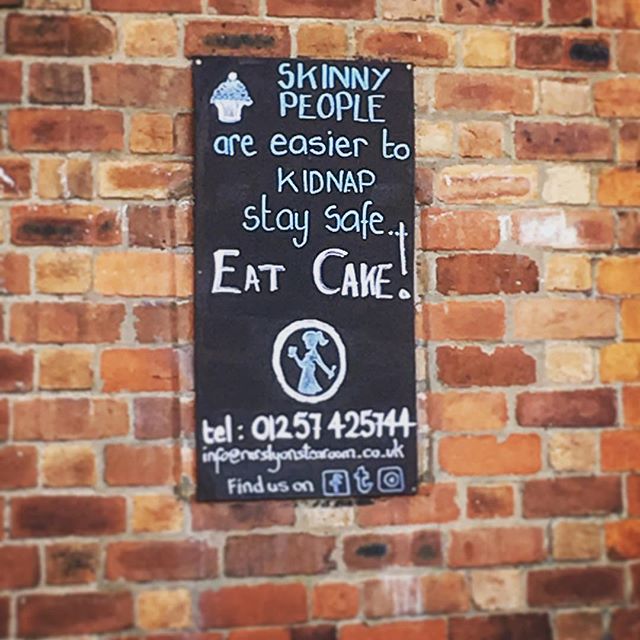 SKINNY
PEOPLE
are easier to
KIDNAP
stay safe...
EAT CAKE!
tel: 01257 425744
Find us on